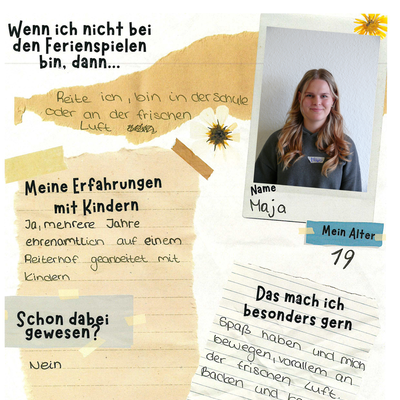 Wenn ich nicht bei
den Ferienspielen
bin, dann...
Reite ich, bin in der Schule
oder an der frischen
Luft
Name
Maja
Mein Alter
19
Meine Erfahrungen
mit Kindern
Ja, mehrere Jahre
ehrenamtlich auf einem
Reiterhof gearbeitet mit
Kindern
Schon dabei
gewesen?
Nein
Das mach ich
besonders gern
Spaß haben und mich
bewegen, vorallem an
der frischen Luft.
Backen und